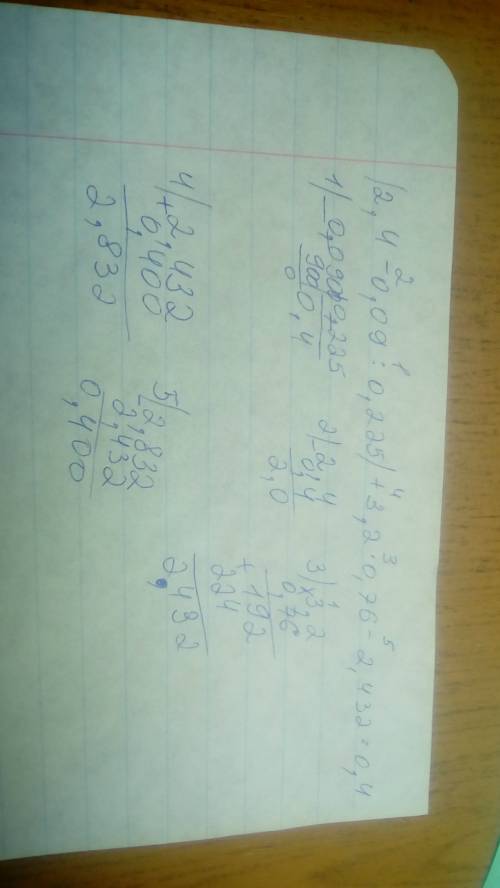 (2,4 - 0,09 : 0,225) + 3,2 · 0,76 - 2,432 = 0,4
2 1 4 3 5
1) 0,0900 0,225
900 0,4
0
2) 2,4
0,4
2,0
3) × 3,2
0,76
+ 192
224
2,432
4) + 2,432
0,400
2,832
5) 2,832
2,432
0,400